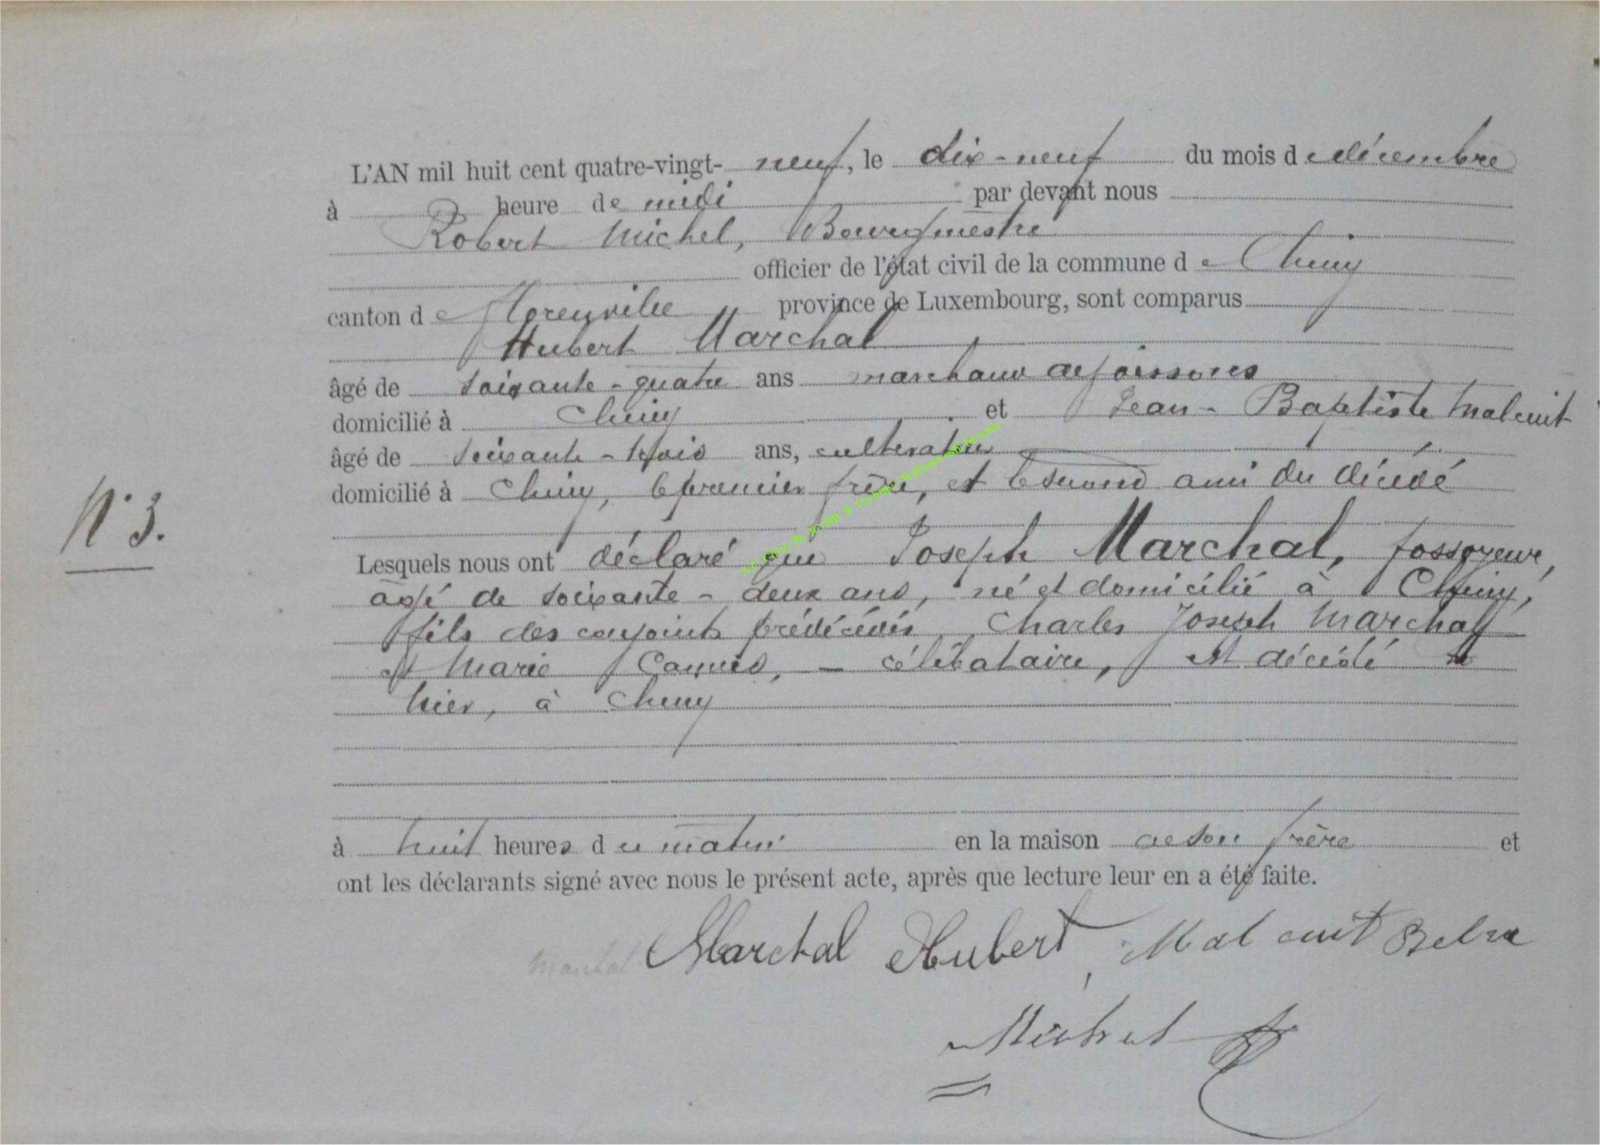 L'AN mil huit cent quatre-vingt- neuf, le dix-neuf du mois de décembre
à heure de midi par devant nous
Robert Michel, Bourgmestre
officier de l'état civil de la commune de Chiny
canton de Florenville province de Luxembourg, sont comparus
Hubert Marchal
âgé de soixante-quatre ans marchand de poissons
domicilié à Chiny et Jean-Baptiste Malcuit
âgé de soixante-trois ans, cultivateur
domicilié à Chiny, le premier frère, et le second ami du décédé
N° 3.
Lesquels nous ont déclaré que Joseph Marchal, fossoyeur,
âgé de soixante-deux ans, né et domicilié à Chiny,
fils des conjoints prédécédés Charles Joseph Marchal
et Marie - célibataire, est décédé
hier, à Chiny
à huit heures du matin en la maison de son frère et
ont les déclarants signé avec nous le présent acte, après que lecture leur en a été faite.
Marchal Hubert Malcuit
Michel R